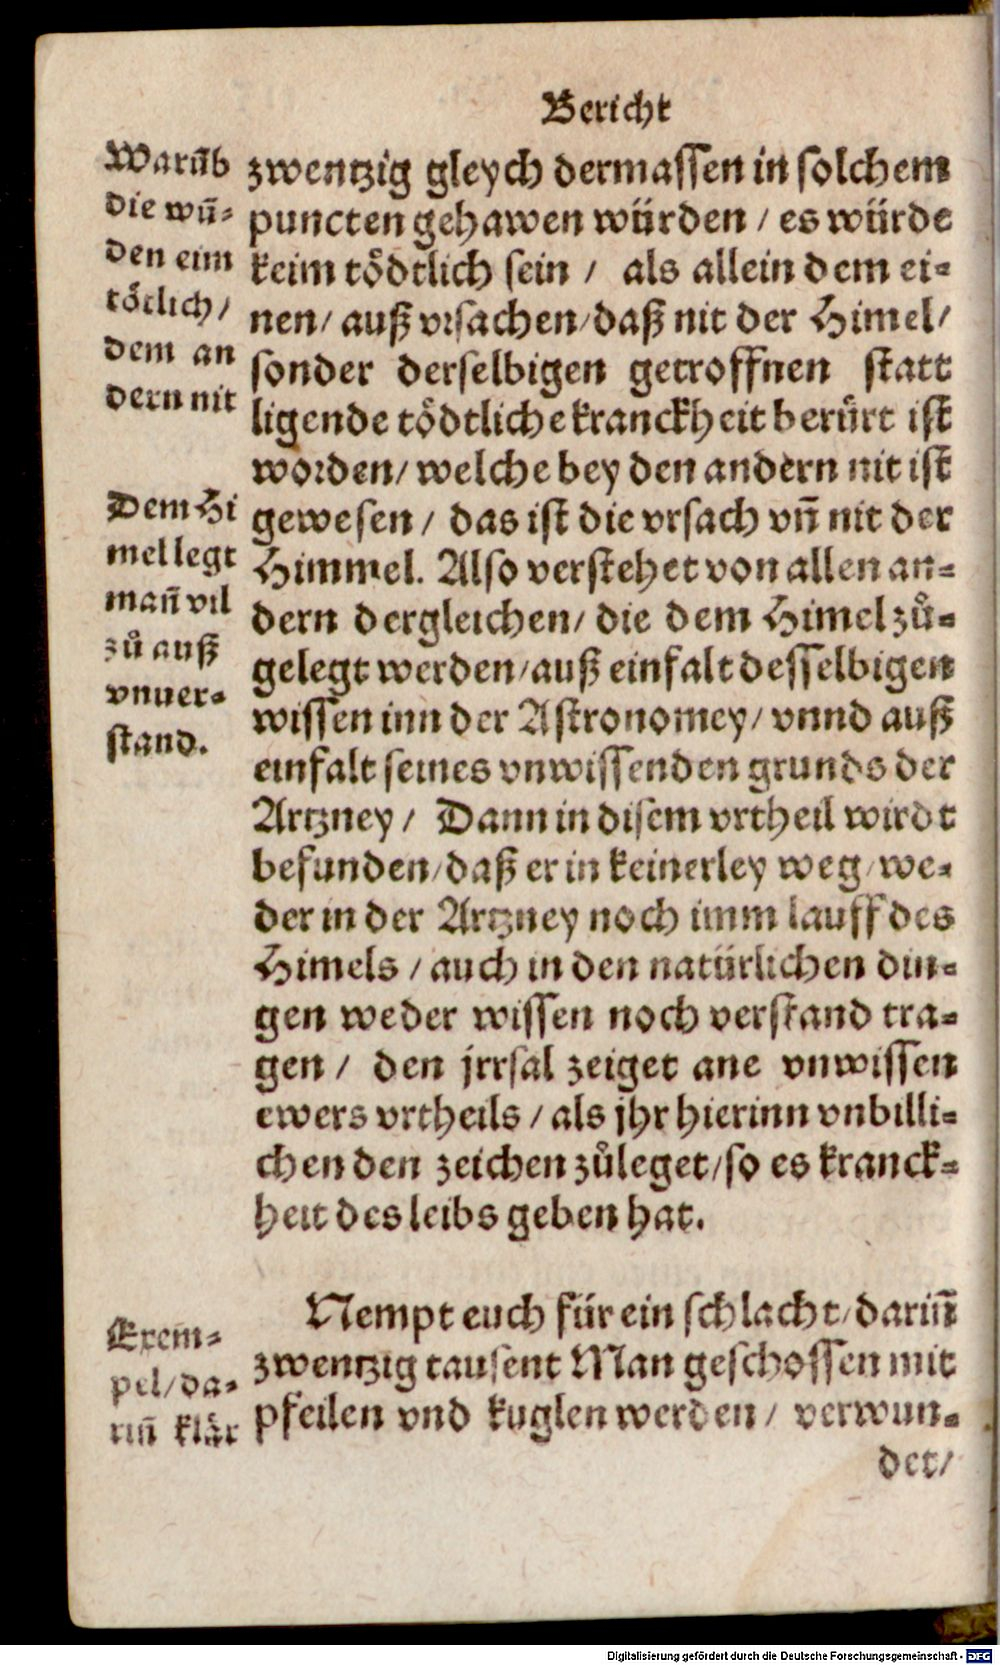 Bericht
Warūb
die wū-
den eim
tötlich/
dem an
dern nit
Dem Hi
mel legt
mañ vil
zů auß
vnuer-
stand.
zwentzig gleych dermassen in solchem
puncten gehawen würden / es würde
keim tödtlich sein / als allein dem ei-
nen/ auß vrsachen/daß nit der Himel/
sonder derselbigen getroffnen statt
ligende tödtliche kranckheit berürt ist
worden/ welche bey den andern nit ist
gewesen / das ist die vrsach vñ nit der
Himmel. Also verstehet von allen an-
dern dergleichen/ die dem Himel zů-
gelegt werden/auß einfalt desselbigen
wissen inn der Astronomey/ vnnd auß
einfalt seines vnwissenden grunds der
Artzney / Dann in disem vrtheil wirdt
befunden/daß er in keinerley weg/we-
der in der Artzney noch imm lauff des
Himels / auch in den natürlichen din-
gen weder wissen noch verstand tra-
gen / den jrrsal zeiget ane vnwissen
ewers vrtheils / als jhr hierinn vnbilli-
chen den zeichen zůleget/so es kranck-
heit des leibs geben hat.
Exem-
pel/da-
riñ klär
Nempt euch für ein schlacht/dariñ
zwentzig tausent Man geschossen mit
pfeilen vnd kuglen werden / verwun-
det/
Digitalisierung gefördert durch die Deutsche Forschungsgemeinschaft - DFG